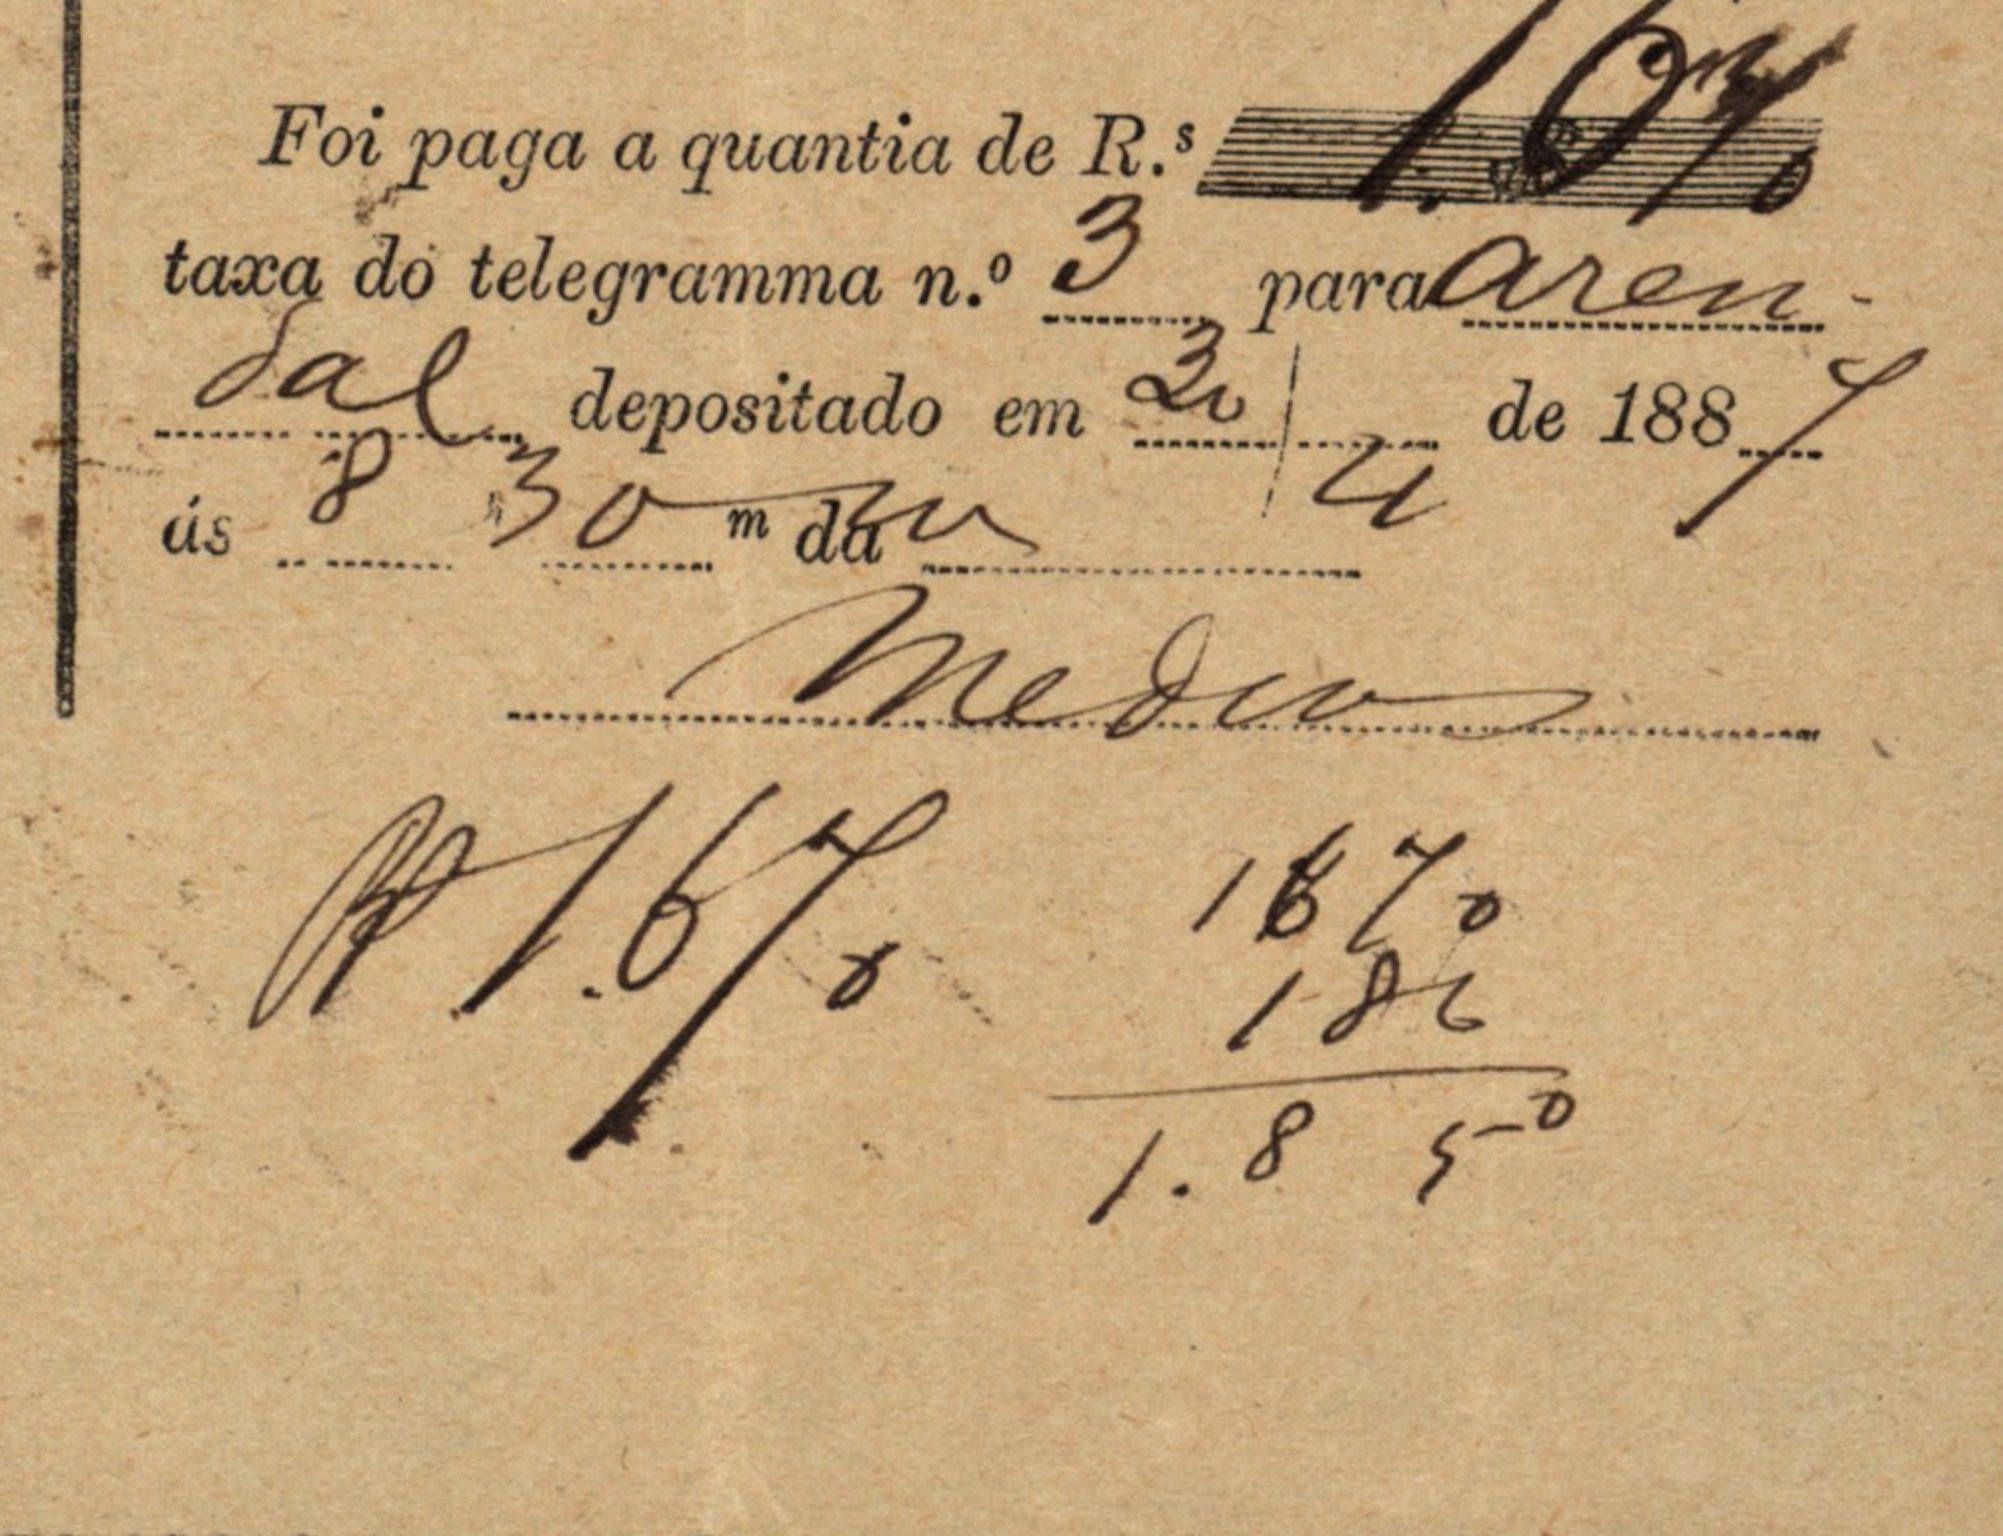 Foi paga a quantia de R.s 1.670
taxa do telegramma n.º 3 para Aren-
dal depositado em 30/4 de 1887
ás 8 h 30 m da m
Medico
1.670 1670
186
1.850